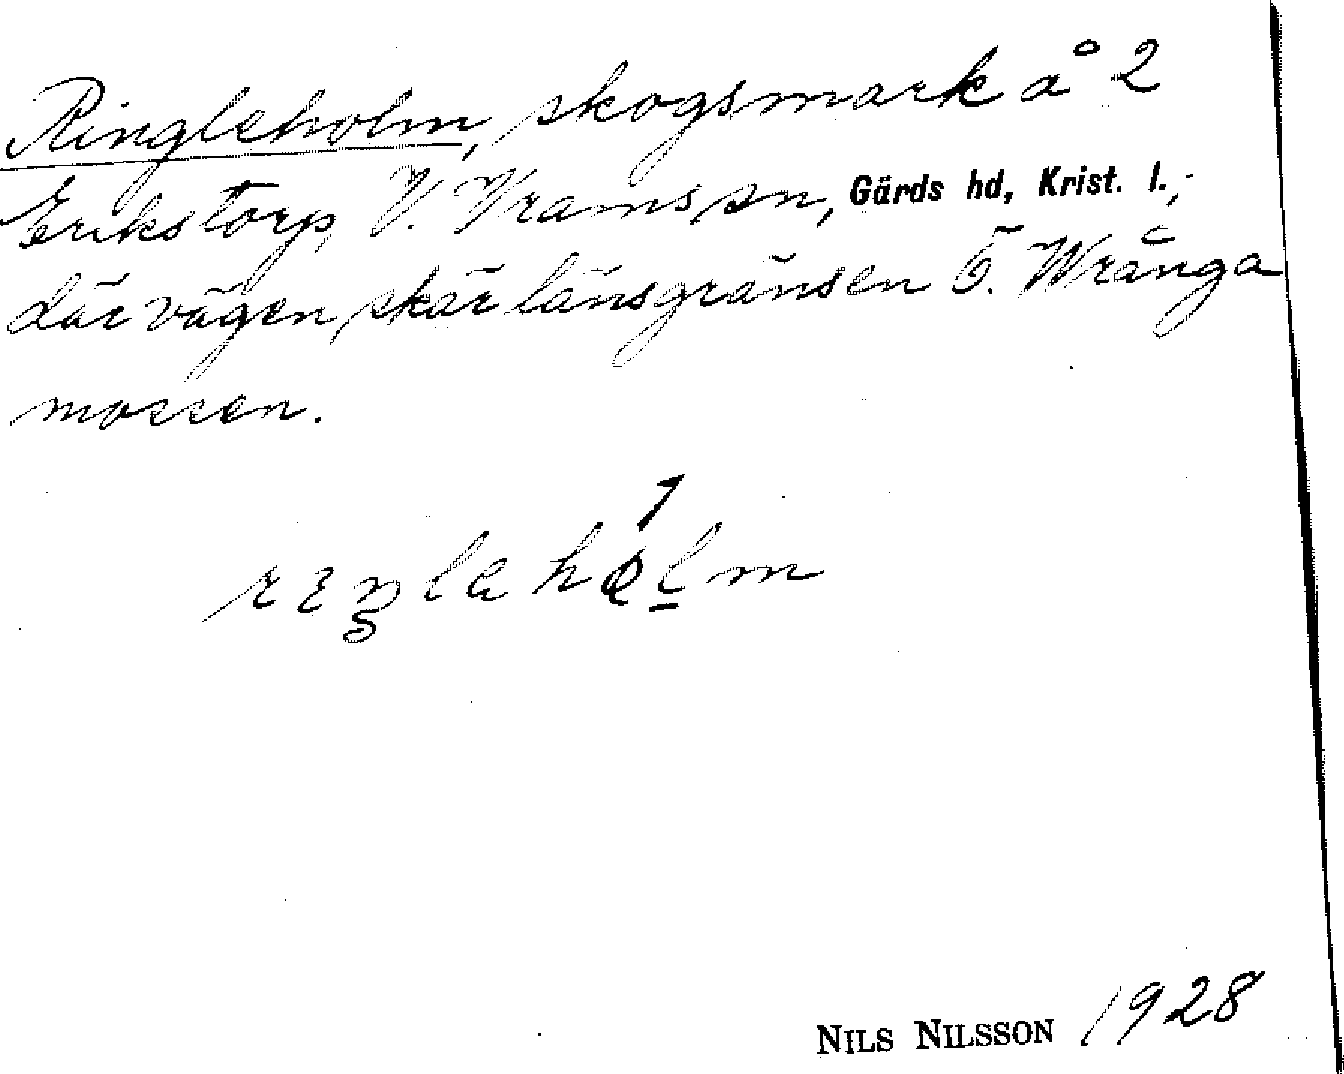 Ringleholm, skogsmark å 2
Erikstorp, V. Vrams sn, Gärds hd, Krist. l.,
där vägen skär länsgränsen Ö. Wrånga
mossen.
NILS NILSSON 1928